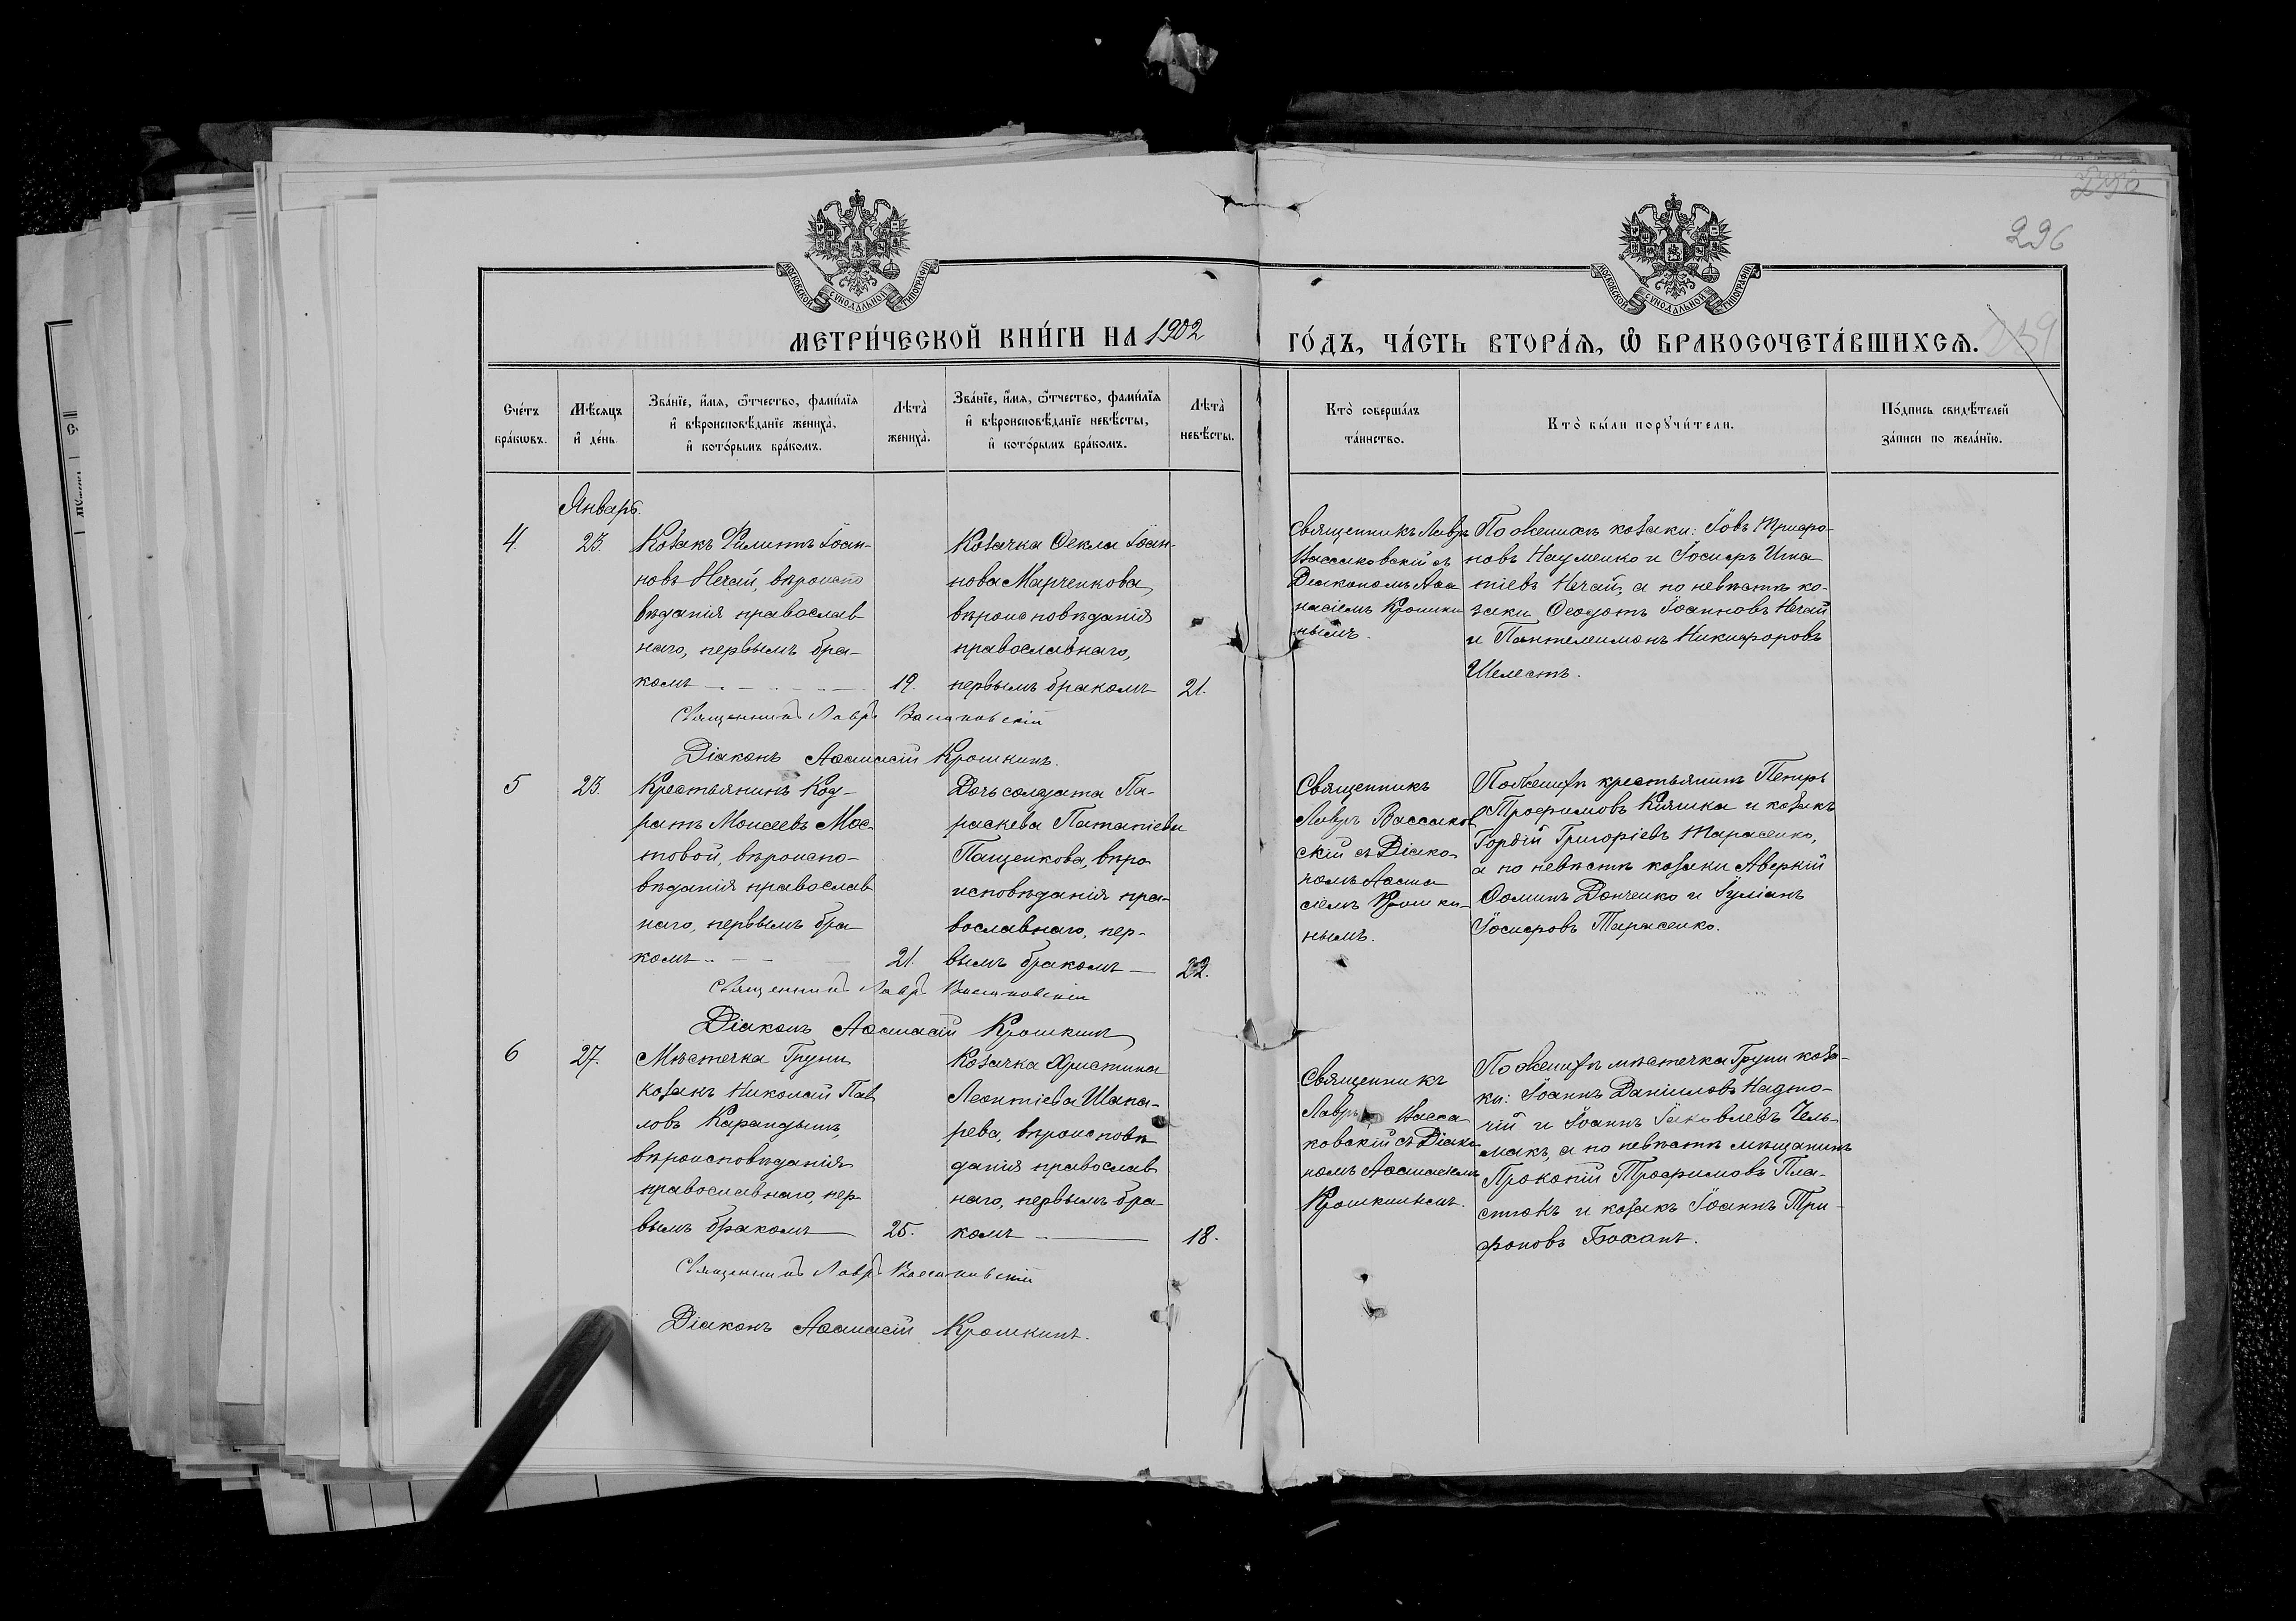 296
МОСКОВСКОЙ СУНОДАЛЬНОЙ ТИПОГРАФІИ
МОСКОВСКОЙ СУНОДАЛЬНОЙ ТИПОГРАФІИ
МЕТРИ́ЧЕСКОЙ КНИ́ГИ НА 1902
ГО́ДЪ, ЧА́СТЬ ВТОРА́Я, Ѡ БРАКОСОЧЕТА́ВШИХСѦ.
Сче́тъ
бра́кѡвъ.
Мѣ́сяцъ
и҆ де́нь.
Зва́нїе, и҆́мя, ѻ҆́тчество, фами́лїя
и҆ вѣроисповѣ́данїе жениха̀,
и҆ кото́рымъ бра́комъ.
Лѣта̀
жениха̀.
Зва́нїе, и҆́мя, ѻ҆́тчество, фами́лїя
и҆ вѣроисповѣ́данїе невѣ́сты,
и҆ кото́рымъ бра́комъ.
Лѣта̀
невѣ́сты.
Кто̀ соверша́лъ
та́инство.
Кто̀ бы́ли порꙋчи́тели.
По́дпись свидѣ́телей
за́писи по жела́нїю.
Январь.
4.
23.
Козакъ Филиппъ Іоан-
новъ Нечай, вѣроиспо
вѣданія православ
наго, первымъ бра-
комъ
19.
Козачка Ѳекла Іоан-
нова Марченкова,
вѣроисповѣданія
православнаго,
первымъ бракомъ
21.
Священникъ Лавръ
Вассаковскій съ
Діакономъ Аѳа
насіемъ Крошки
нымъ.
По женихѣ козаки: Іовъ Трифо-
новъ Науменко и Іосифъ Игна
тіевъ Нечай, а по невѣстѣ ко-
заки Ѳеодотъ Іоанновъ Нечай
и Пантелимонъ Никифоровъ
Шелестъ.
Священникъ Лавръ Вассаковскій
Діаконъ Аѳанасій Крошкинъ.
5
23.
Крестьянинъ Код-
ратъ Моисеевъ Мос-
товой, вѣроиспо-
вѣданія православ
наго, первымъ бра
комъ
21.
Дочь солдата Па-
раскева Патапіева
Пащенкова, вѣро
исповѣданія пра-
вославнаго, пер-
вымъ бракомъ
22.
Священникъ
Лавръ Вассаков
скій съ Діако-
номъ Аѳана
сіемъ Крошки-
нымъ.
По женихѣ крестьянинъ Петръ
Трофимовъ Кияшка и козакъ
Гордій Григоріевъ Тарасенко,
а по невѣстѣ козаки Аверкій
Ѳоминъ Донченко и Іуліанъ
Іосифовъ Тарасенко.
Священникъ Лавръ Вассаковскій
Діаконъ Аѳанасій Крошкинъ
6
27.
Мѣстечка Груни
козакъ Николай Пав
ловъ Карандышъ,
вѣроисповѣданія
православнаго, пер-
вымъ бракомъ
25.
Козачка Христина
Леонтіева Шапа-
рева, вѣроисповѣ
данія православ
наго, первымъ бра
комъ
18.
Священникъ
Лавръ Васса
ковскій съ Діако
номъ Аѳанасіемъ
Крошкинымъ.
По женихѣ мѣстечка Груни коза-
ки: Іоаннъ Даніиловъ Надто-
чій и Іоаннъ Іаковлевъ Чель-
макъ, а по невѣстѣ мѣщанинъ
Прокопій Трофимовъ Пла-
стюкъ и козакъ Іоаннъ Три-
фоновъ Боханъ.
Священникъ Лавръ Вассаковскій
Діаконъ Аѳанасій Крошкинъ.